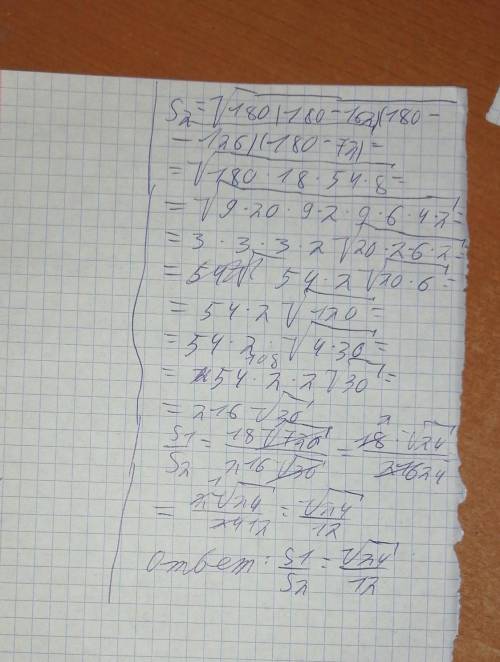 S2=√180(180-162)(180-
-126)(180-72)=
=√180·18·54·8=
=√9·20·9·2·9·6·4·2=
=3·3·3·2√20·2·6·2=
=54·2√20·6=
=54·2√120=
=54·2·√4·30=
=54·2·2√30=
=216√30
S1/S2=18√720/216√30=18·√24/216
=2√24/24=√24/12
Ответ: S1/S2=√24/12